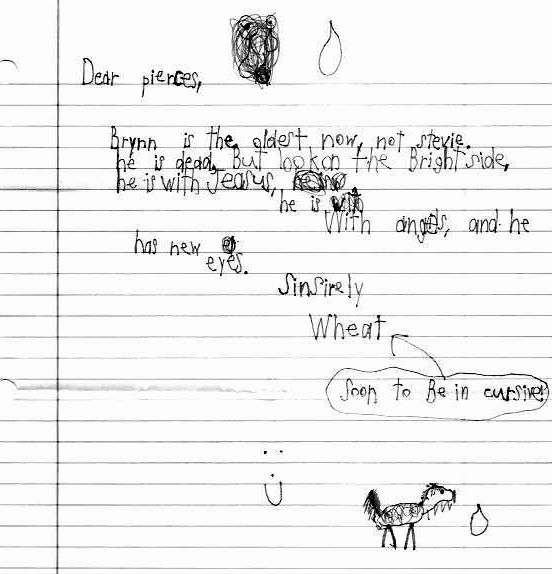 Dear pierces,
Brynn is the oldest now, not stevie.
he is dead, But look on the Bright side,
he is with Jeasus,
he is
With angels, and he
has new
eyes.
Sinsirely
Wheat
Soon to Be in cursive